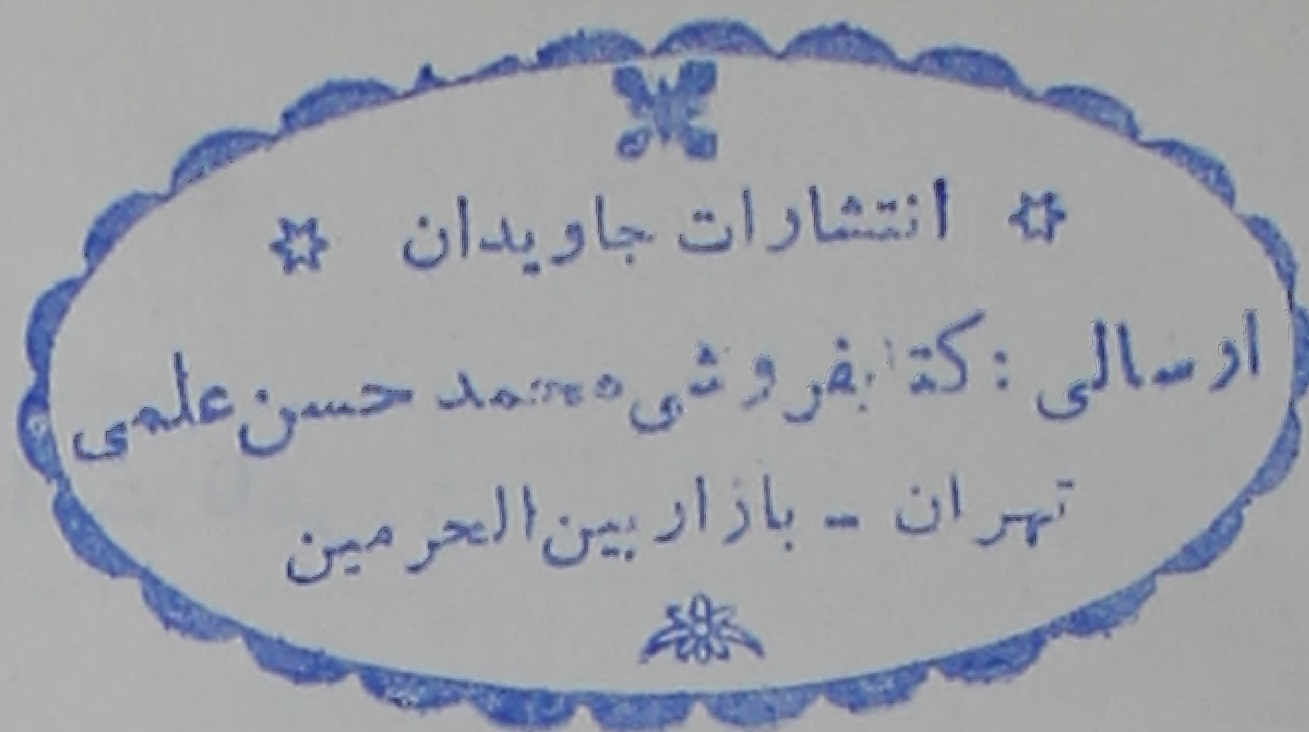 انتشارات جاویدان
ارسالی : کتابفروشی محمد حسن علمی
تهران - بازار بین الحرمین